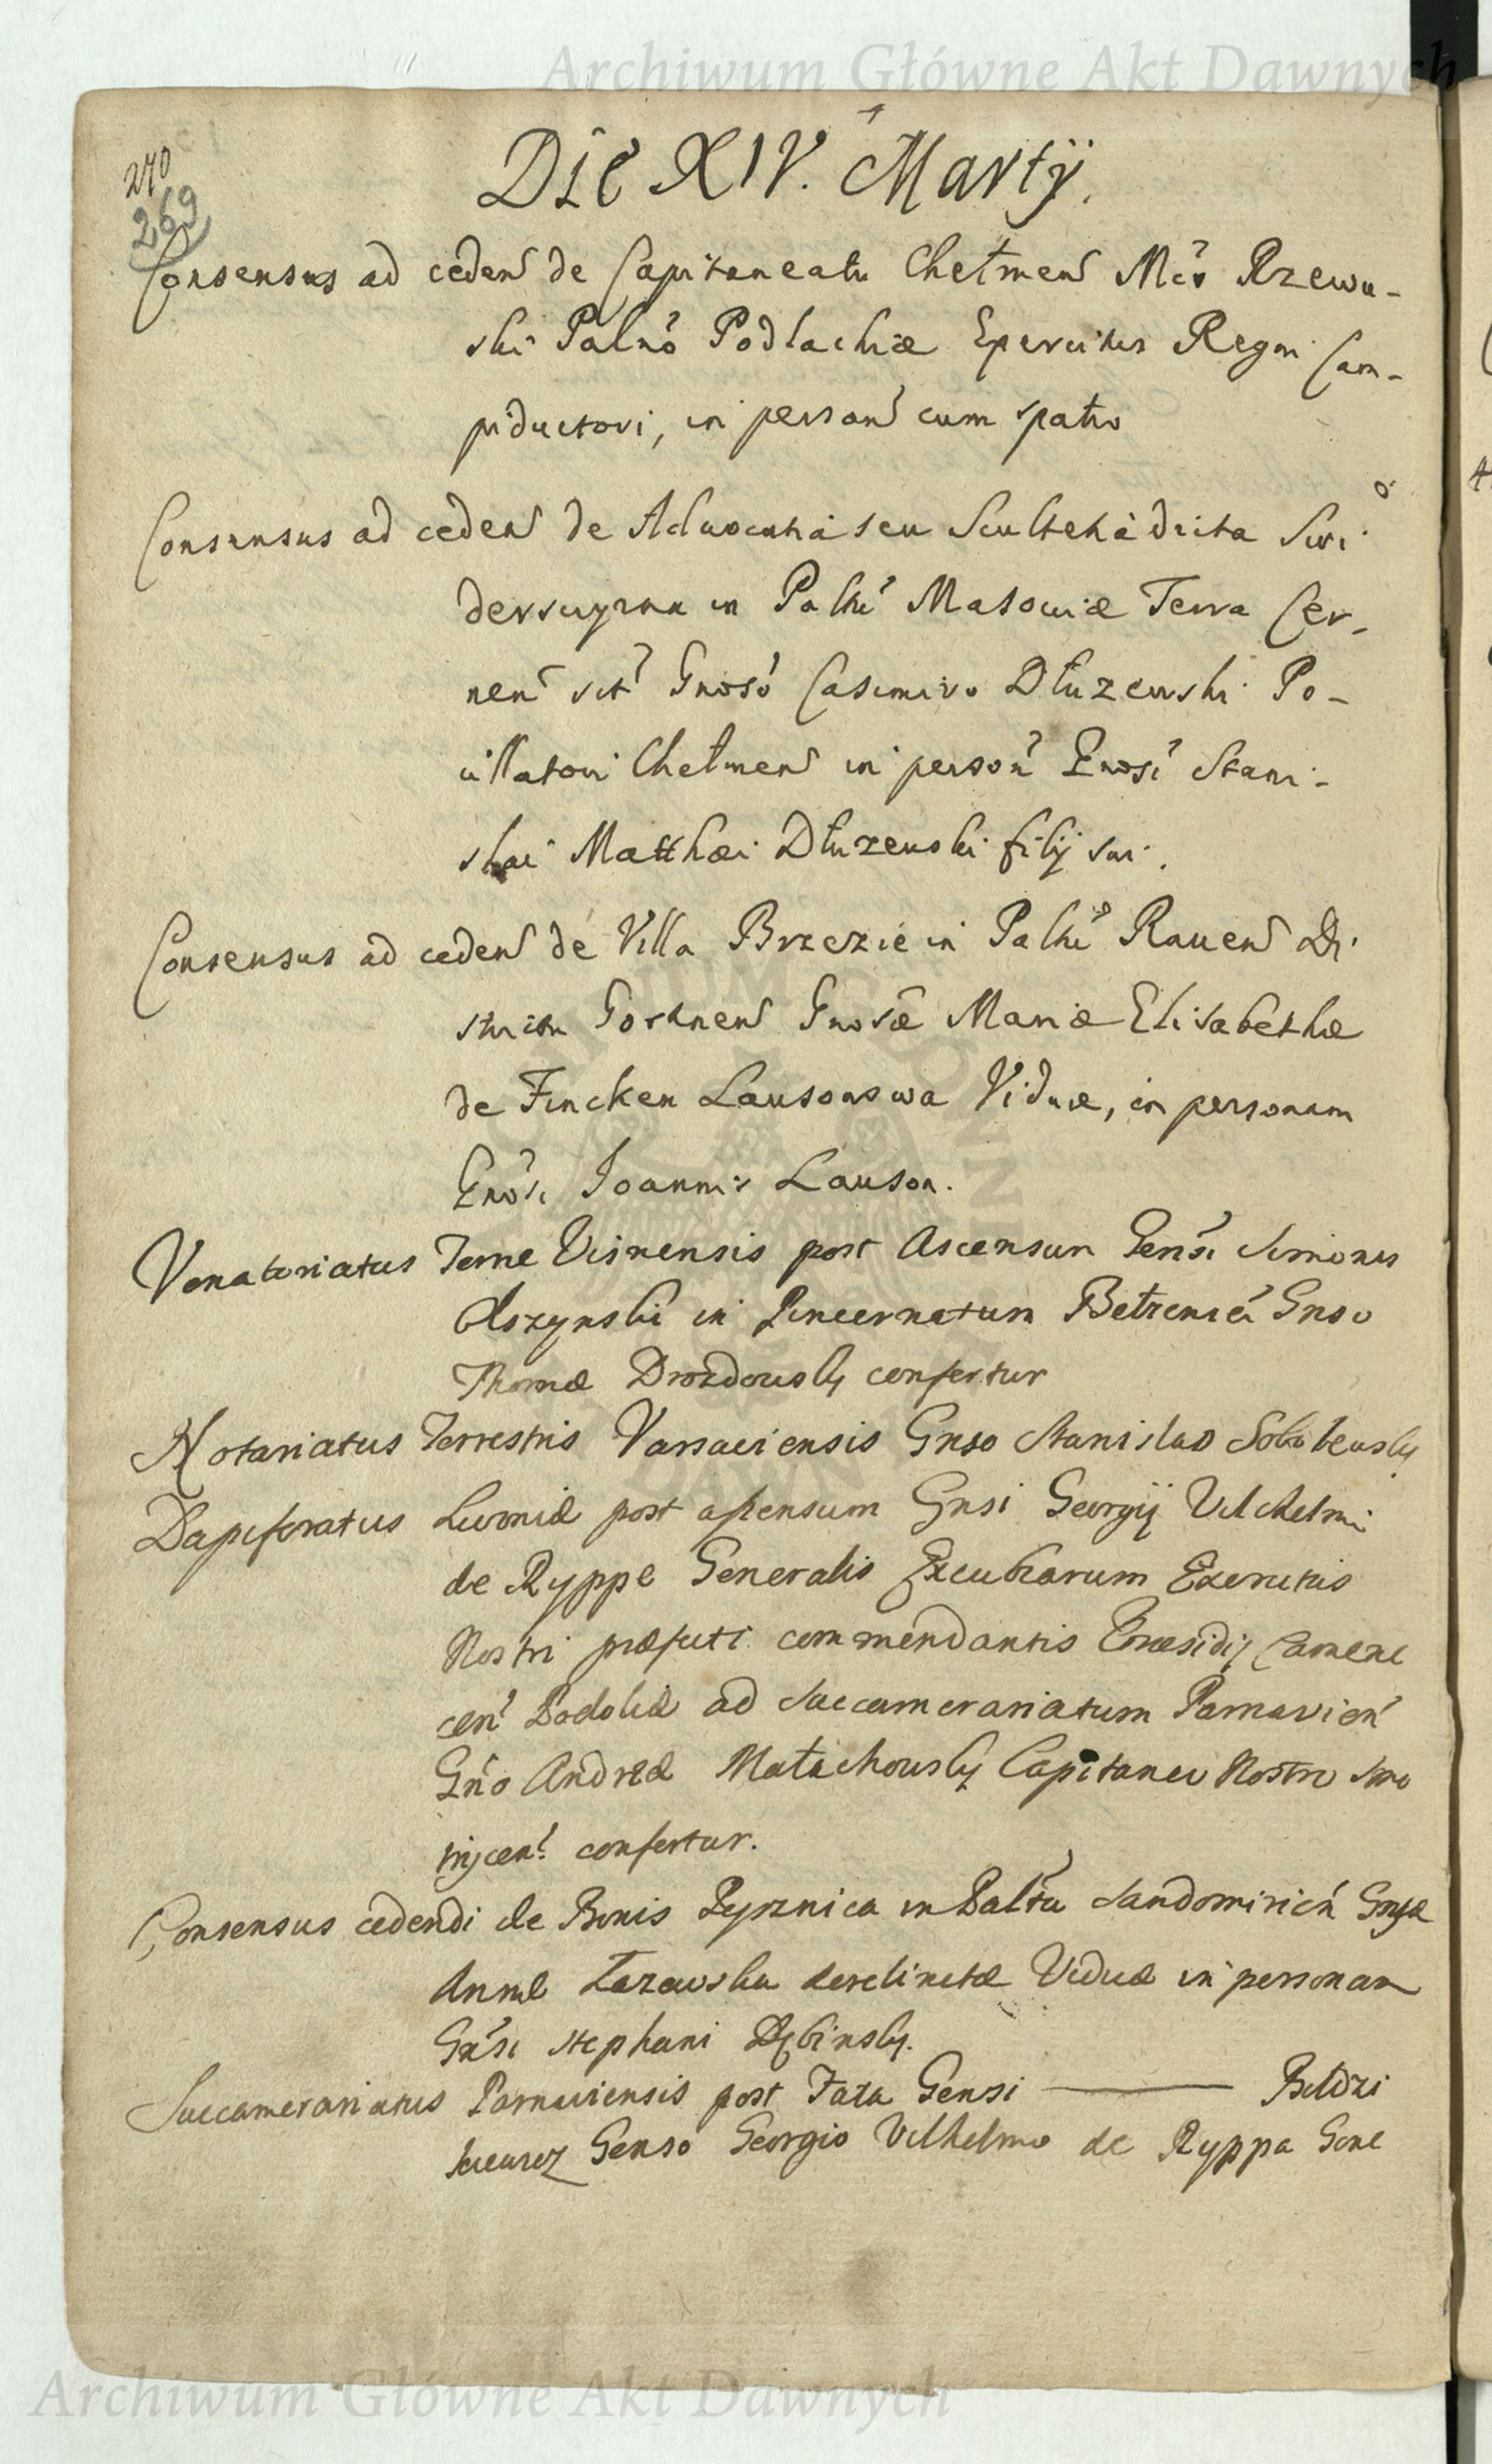 Archiwum Główne Akt Dawnych
270
269
Die XIV. Martij.
Consensus ad ceden de Capitaneatu Chełmen Mco Rzewu-
ski Palno Podlachiæ Exercitus Regni Cam-
piductori, in person cum spatio
Consensus ad ceden de Aduocatia seu Scultetia dicta Swi
in Palnu Masouiæ Terra Cer-
nen Gnoso Casimiro Dłuzewski Po-
cillatori Chełmen in person Gnosi Stani-
slai Matthæi Dłuzewski filij sui.
Consensus ad ceden de Villa Brzezie in Paltu Rauen Di
strictu Gostnen Gnosæ Mariæ Elisabethæ
de Fincken Lausonowa Viduæ, in personam
Gnosi Joannis Lauson.
Venatoriatus Terræ Visnensis post Ascensum Gensi Simonis
Olszynski in Pincernatum Gnso
Thomæ Drozdowsky confertur
Notariatus Terrestris Varsaviensis Gnso Stanislao
Dapiferatus Livoniæ post assensum Gnsi Georgij Vilchelmi
de Ryppe Generalis Excubiarum Exercitus
Nostri præfecti commendantis Præsidij Camene
cen Podoliæ ad Succamerariatum Parnavien
Gno Andreæ Małachowsky Capitaneo Nostro
confertur.
Consensus cedendi de Bonis Pysznica in Paltu Sandomirien Gnsæ
Annæ derelictæ Viduæ in personam
Gnsi Stephani Dębinsky.
Succamerariatus Parnaviensis post Fata Gensi ——
Genso Georgio Vilhelmo de Ryppa Gene
Archiwum Główne Akt Dawnych